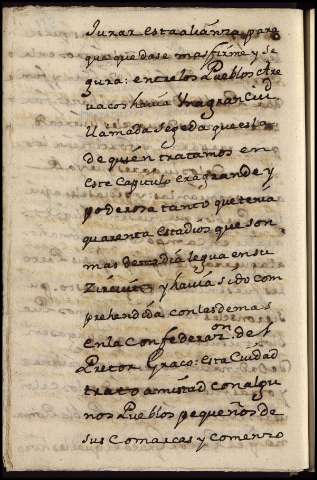 Jurar esta alianza para
que quedase mas firme y se
gura: entre los Pueblos
havia Una gran Ciu.d
llamada Segeda que esta
de quien tratamos en
este Capitulo era grande y
poderosa tanto que tenia
quarenta Estadios que son
mas de legua en su
y havia sido com
prehendida con los demas
en la Confederaz.on de el
Pretor Graco: esta Ciudad
trato amistad con algu
nos Pueblos pequeños de
sus Comarcas y comenzo